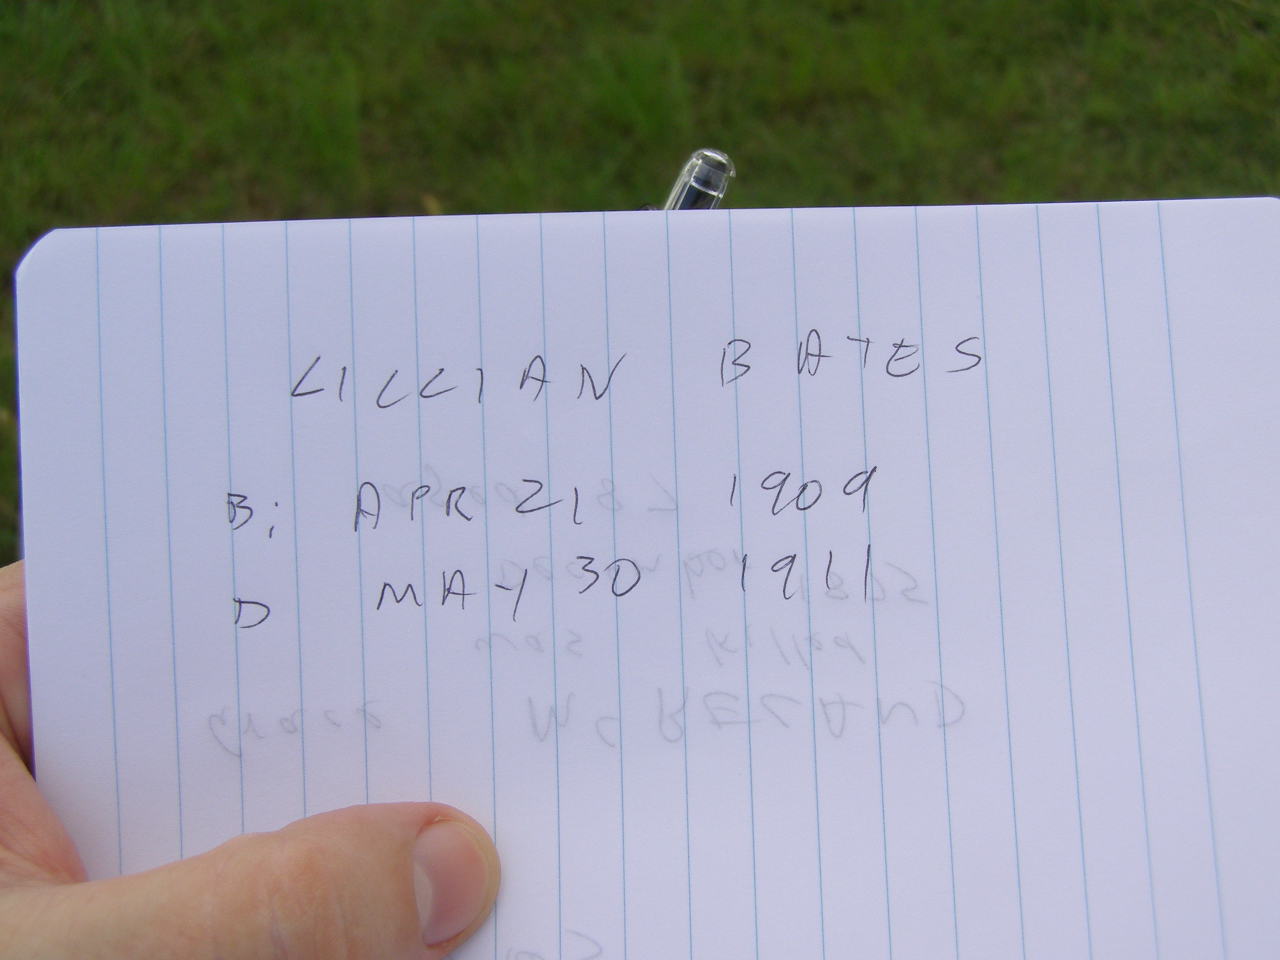 LILLIAN BATES
B; APR 21 1909
D MAY 30 1911